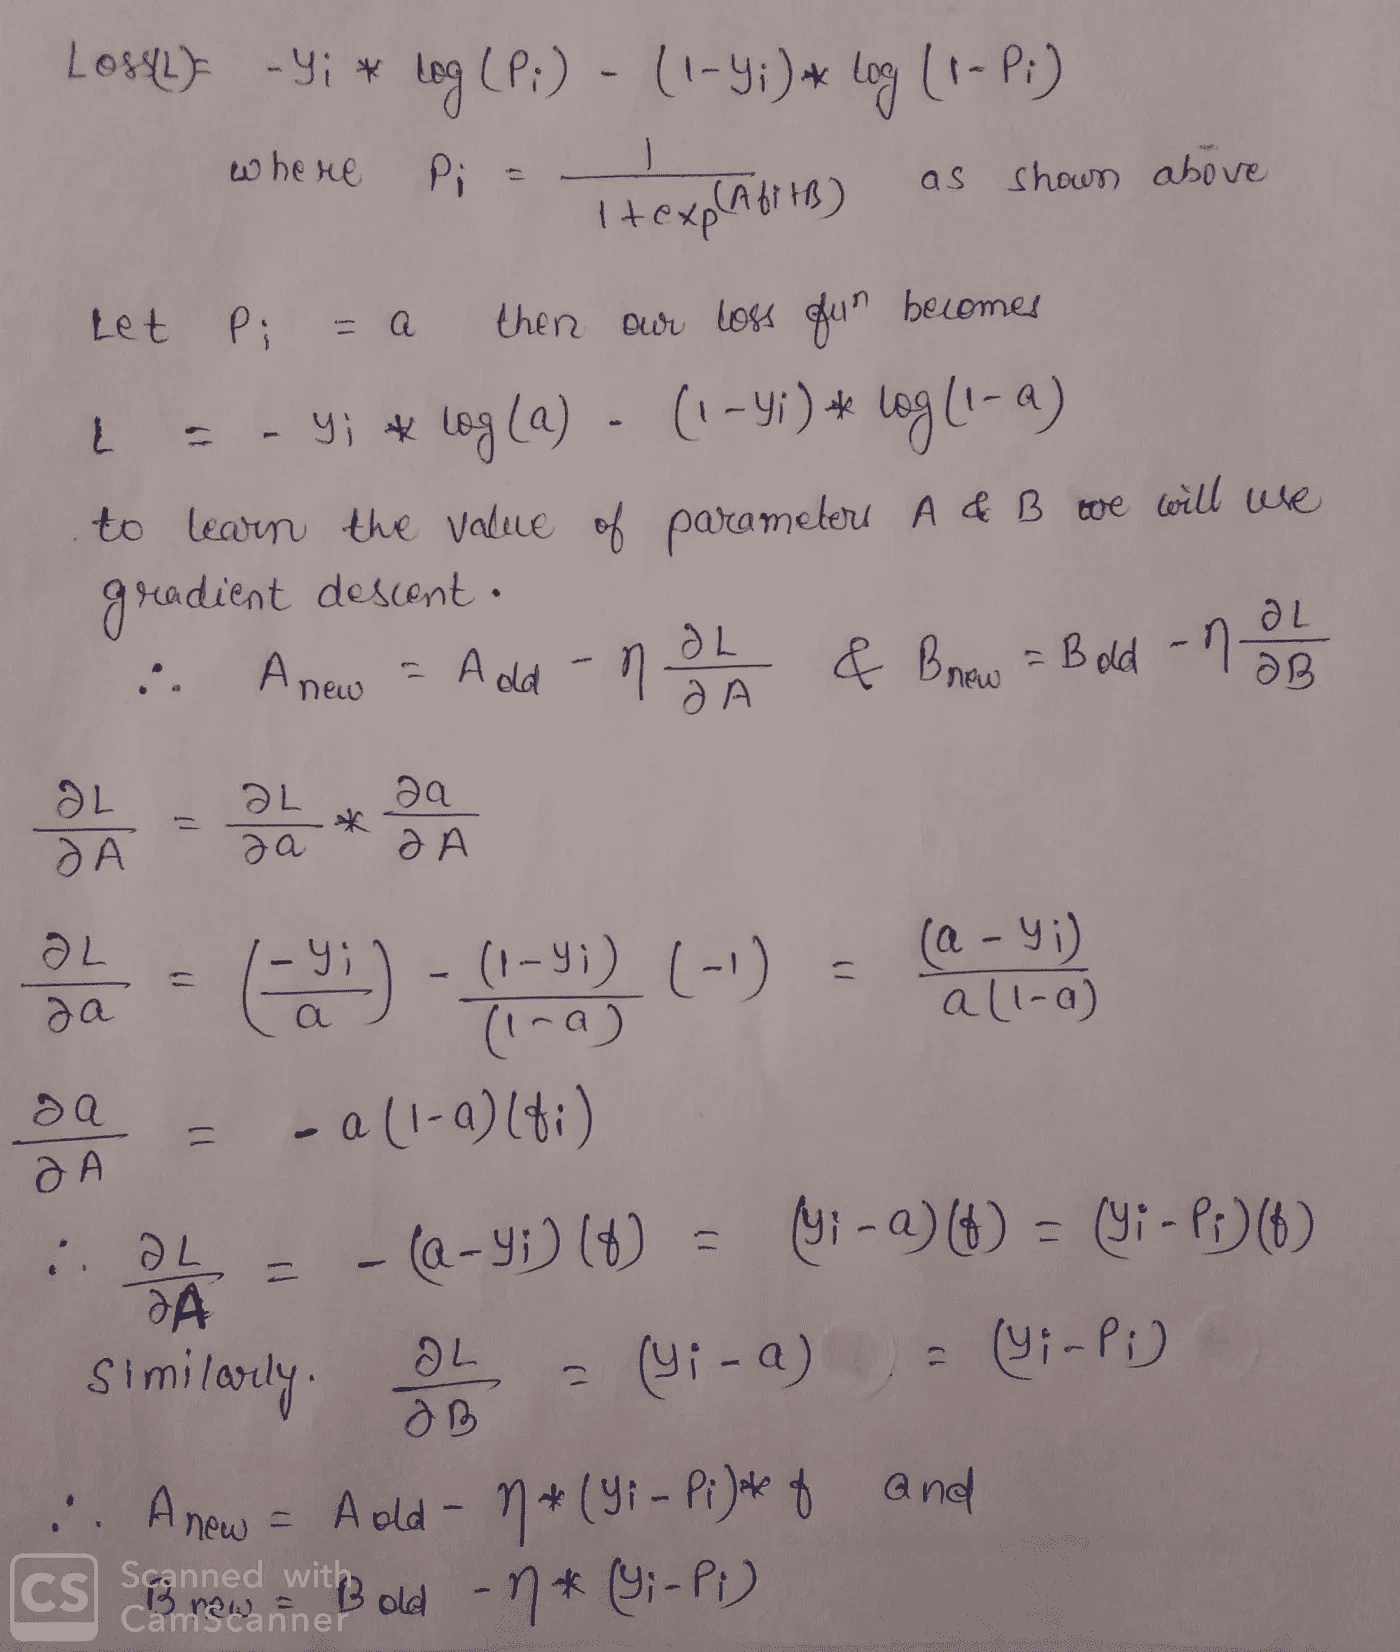 Loss(L) = -yi * log(Pi) - (1-yi) * log(1-Pi)
where Pi = 1/(1+exp^(Afi+B)) as shown above
Let Pi = a then our loss fuⁿ becomes
L = - yi * log(a) - (1-yi) * log(1-a)
to learn the value of parameters A & B we will use
gradient descent.
∴ A new = A old - η ∂L/∂A & B new = B old - η ∂L/∂B
∂L/∂A = ∂L/∂a * ∂a/∂A
∂L/∂a = (-yi/a) - (1-yi)/(1-a) (-1) = (a-yi)/a(1-a)
∂a/∂A = - a(1-a)(fi)
∴ ∂L/∂A = - (a-yi)(f) = (yi-a)(f) = (yi-Pi)(f)
Similarly. ∂L/∂B = (yi-a) = (yi-Pi)
∴ A new = A old - η*(yi-Pi)*f and
B new = B old - η*(yi-Pi)
CS Scanned with
CamScanner